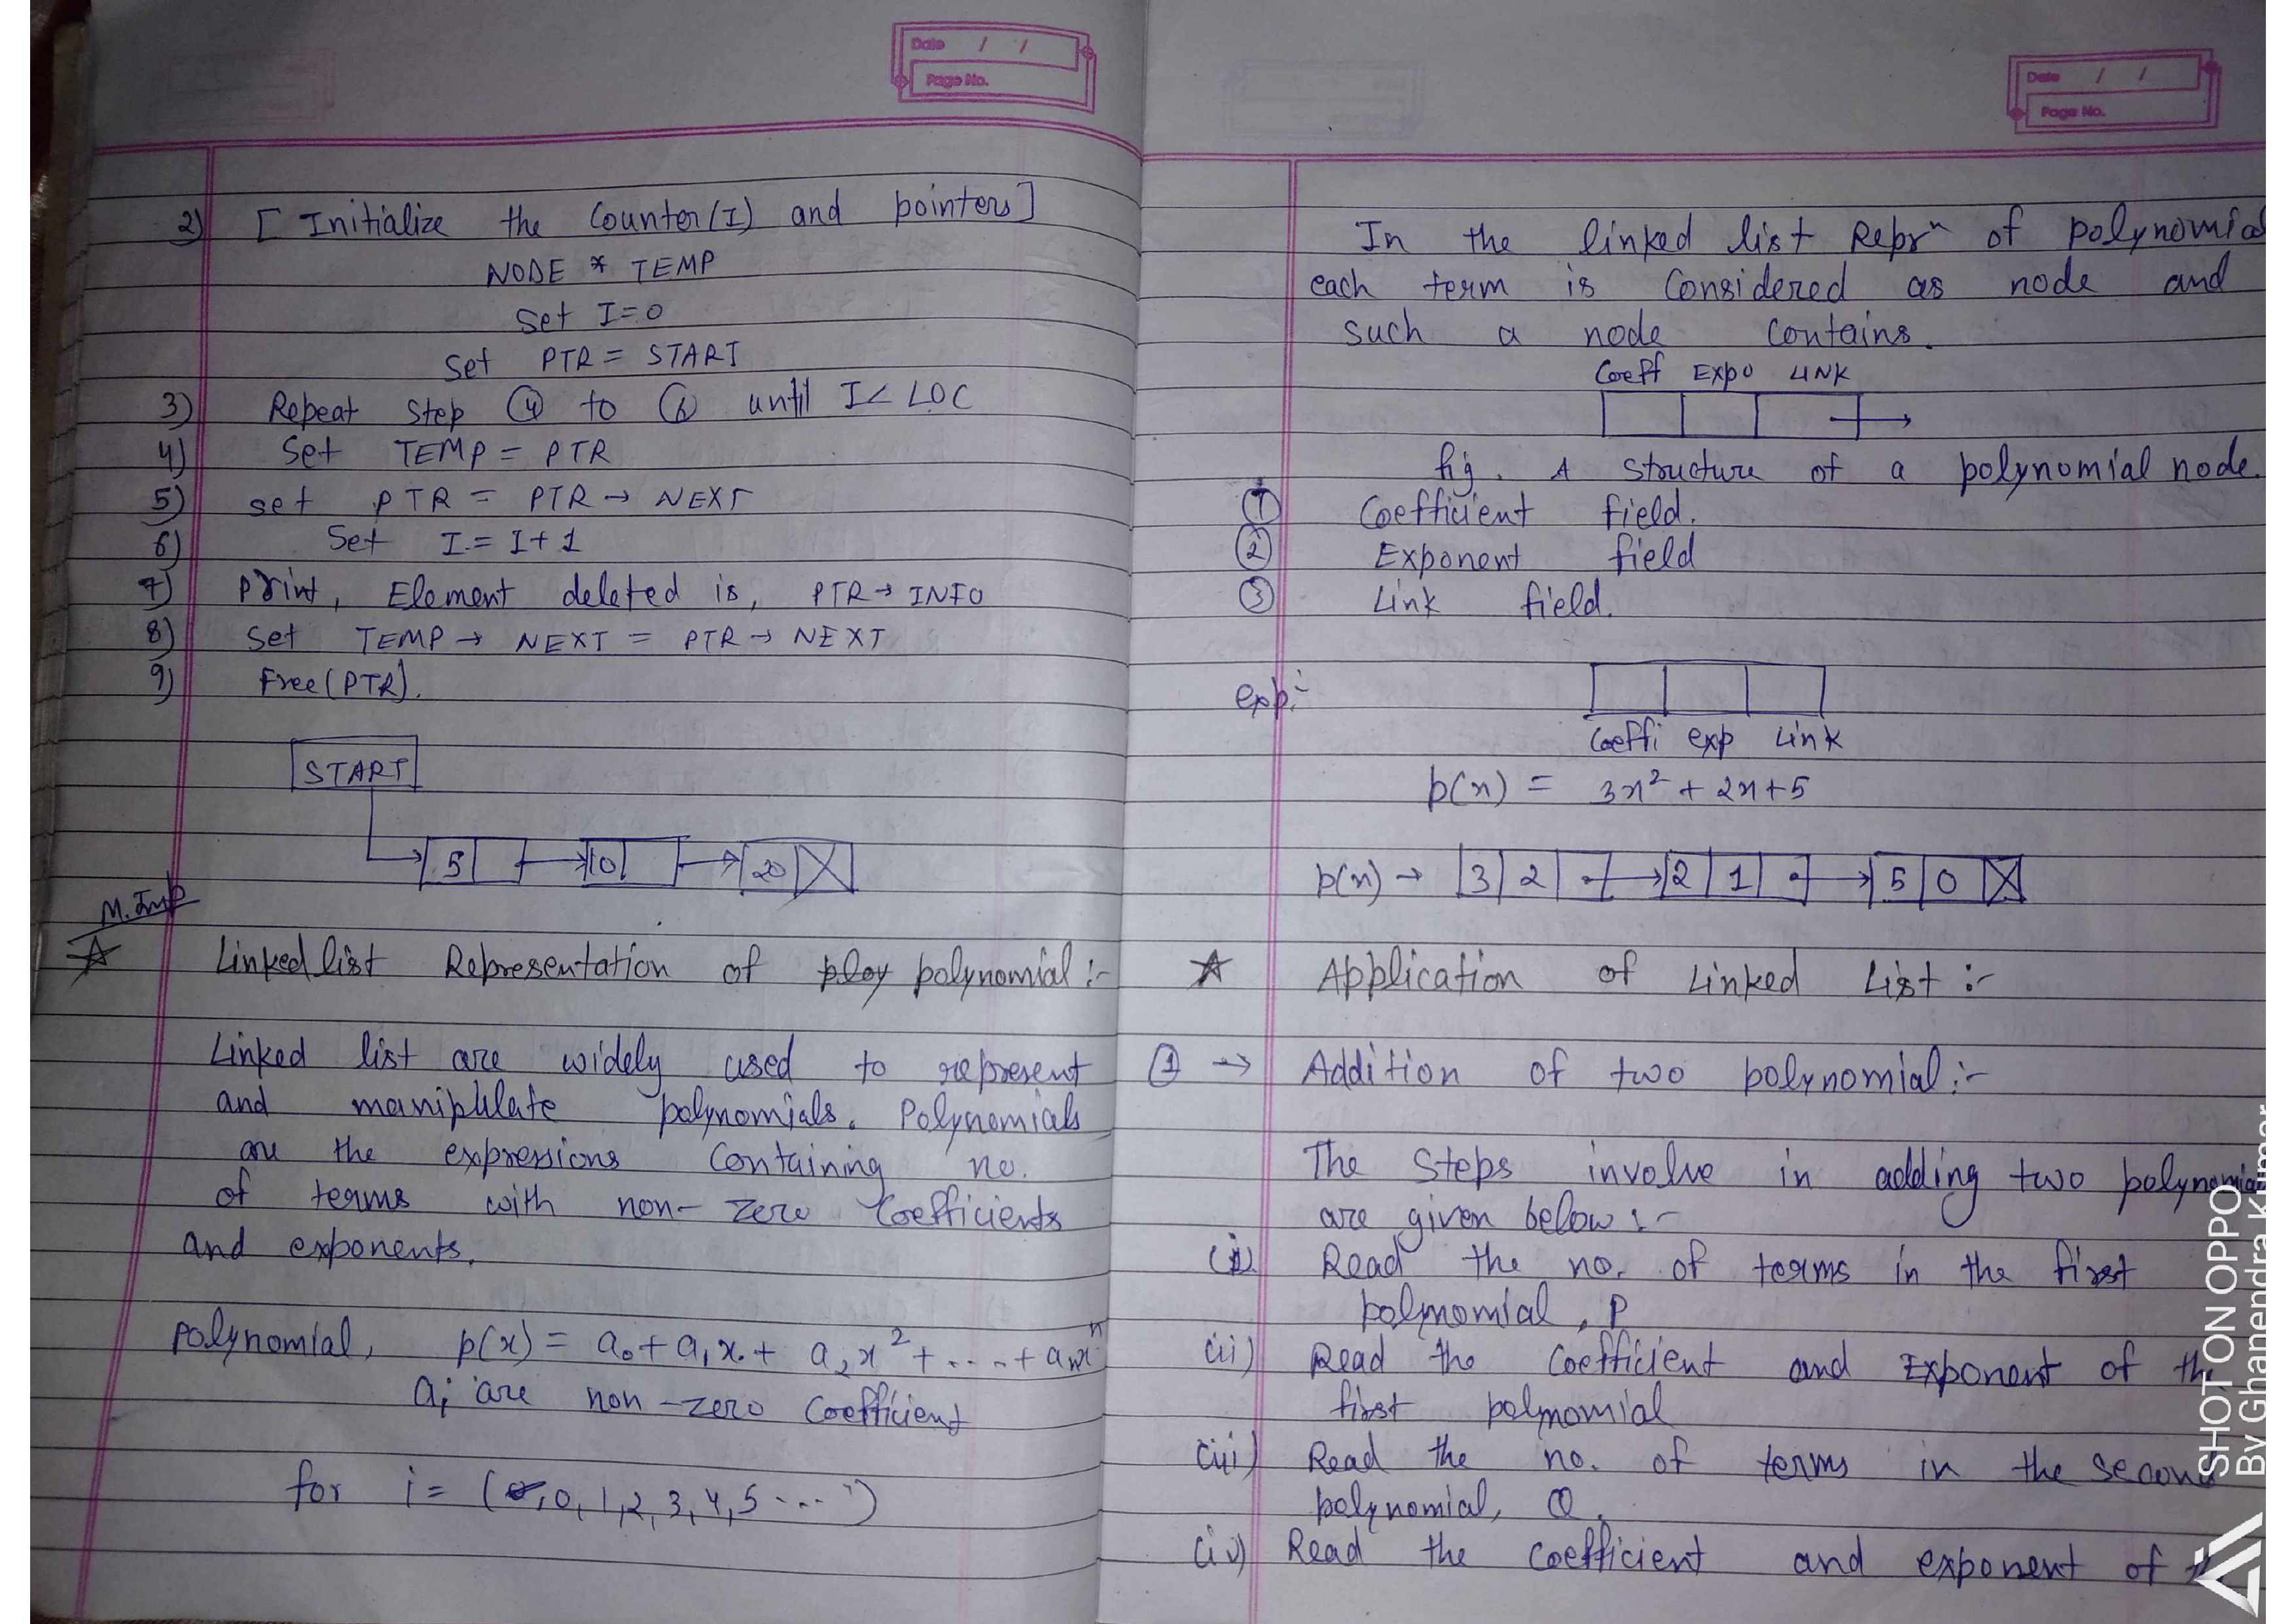 Date / /
Page No.
2) [ Initialize the Counter(I) and pointers]
NODE * TEMP
Set I=0
Set PTR = START
3) Repeat Step ④ to ⑥ until I< LOC
4) Set TEMP = PTR
5) set PTR = PTR → NEXT
6) Set I = I+1
7) print, Element deleted is, PTR → INFO
8) Set TEMP → NEXT = PTR → NEXT
9) Free(PTR).
START
5 10 20
M.Imp
☆ Linked list Representation of ploy polynomial :-
Linked list are widely used to represent
and maniplulate polynomials. Polynomials
are the expressions Containing no.
of terms with non-zero Coefficients
and exponents.
polynomial, p(x) = a₀ + a₁x + a₂x² + .... + aₙxⁿ
aᵢ are non-zero Coefficient
for i = (0, 1, 2, 3, 4, 5 ....)
Date / /
Page No.
In the linked list Reprⁿ of polynomial
each term is Considered as node and
such a node Contains.
Coeff Expo LINK
fig. A structure of a polynomial node.
① Coefficient field.
② Exponent field
③ Link field.
exp:-
Coeffi exp Link
p(x) = 3x² + 2x+5
p(x) → 3 2 → 2 1 → 5 0
☆ Application of Linked List :-
① → Addition of two polynomial :-
The Steps involve in adding two polynomial
are given below :-
(i) Read the no. of terms in the first
polmomial, P
(ii) Read the Coefficient and Exponent of the
first polmomial
(iii) Read the no. of terms in the second
polynomial, Q.
(iv) Read the Coefficient and exponent of the
SHOT ON OPPO
By Ghanendra Kumar